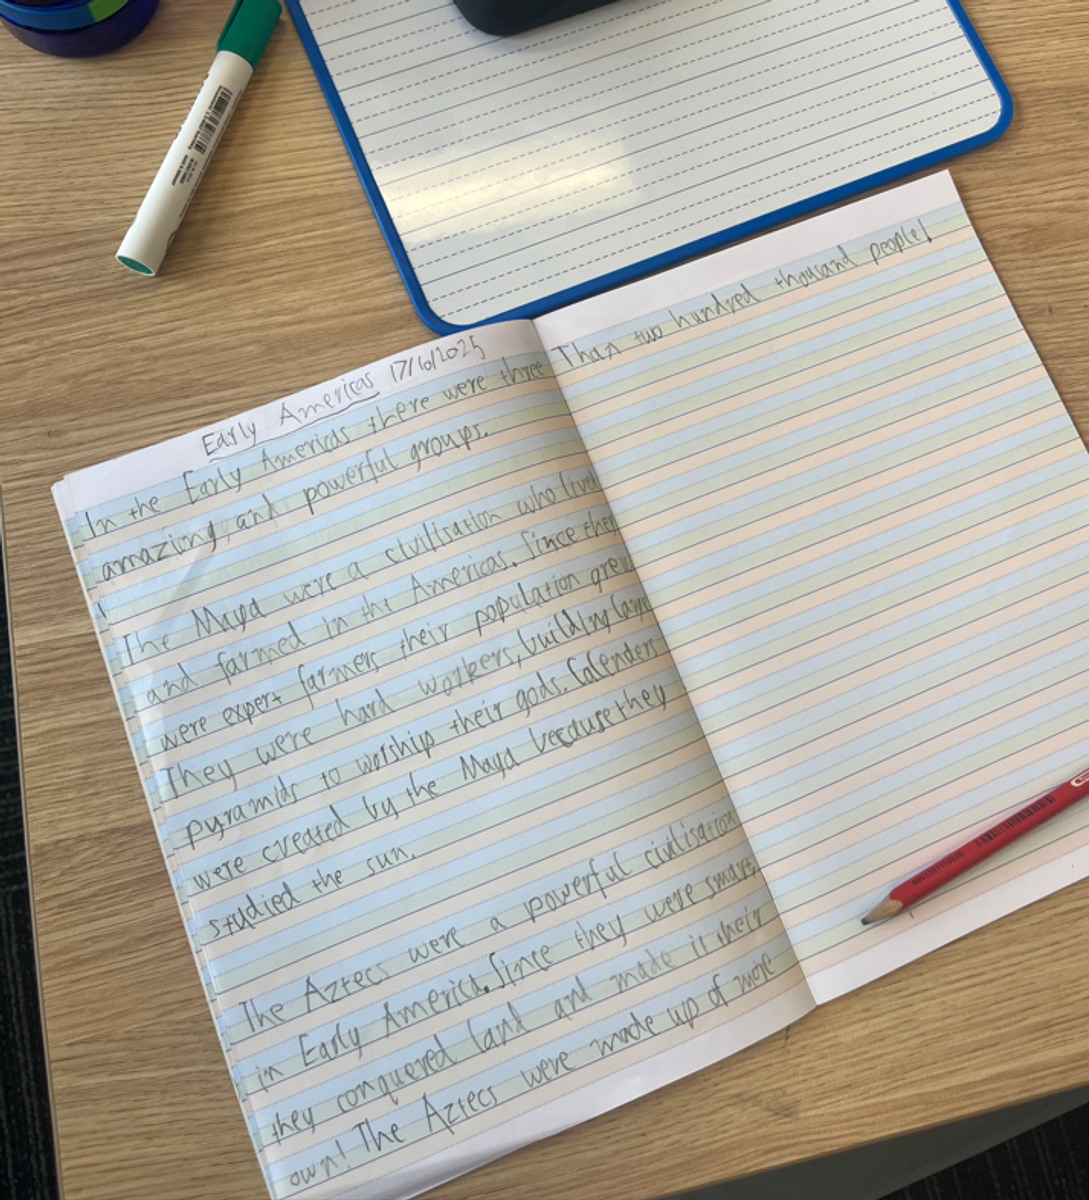 Early Americas 17/6/2025
In the Early Americas there were three
amazing and powerful groups.
The Maya were a civilisation who lived
and farmed in the Americas. Since they
were expert farmers their population grew
They were hard workers, building large
pyramids to worship their gods. Calenders
were created by the Maya because they
studied the sun.
The Aztecs were a powerful civilisation
in Early America. Since they were smart,
they conquered land and made it their
own! The Aztecs were made up of more
Than two hundred thousand people!